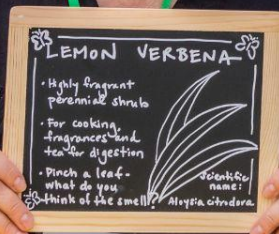 LEMON VERBENA
• Highly fragrant
perennial shrub
• For cooking,
fragrances and
tea for digestion
• Pinch a leaf-
what do you
think of the smell?
Scientific
name:
Aloysia citrodora